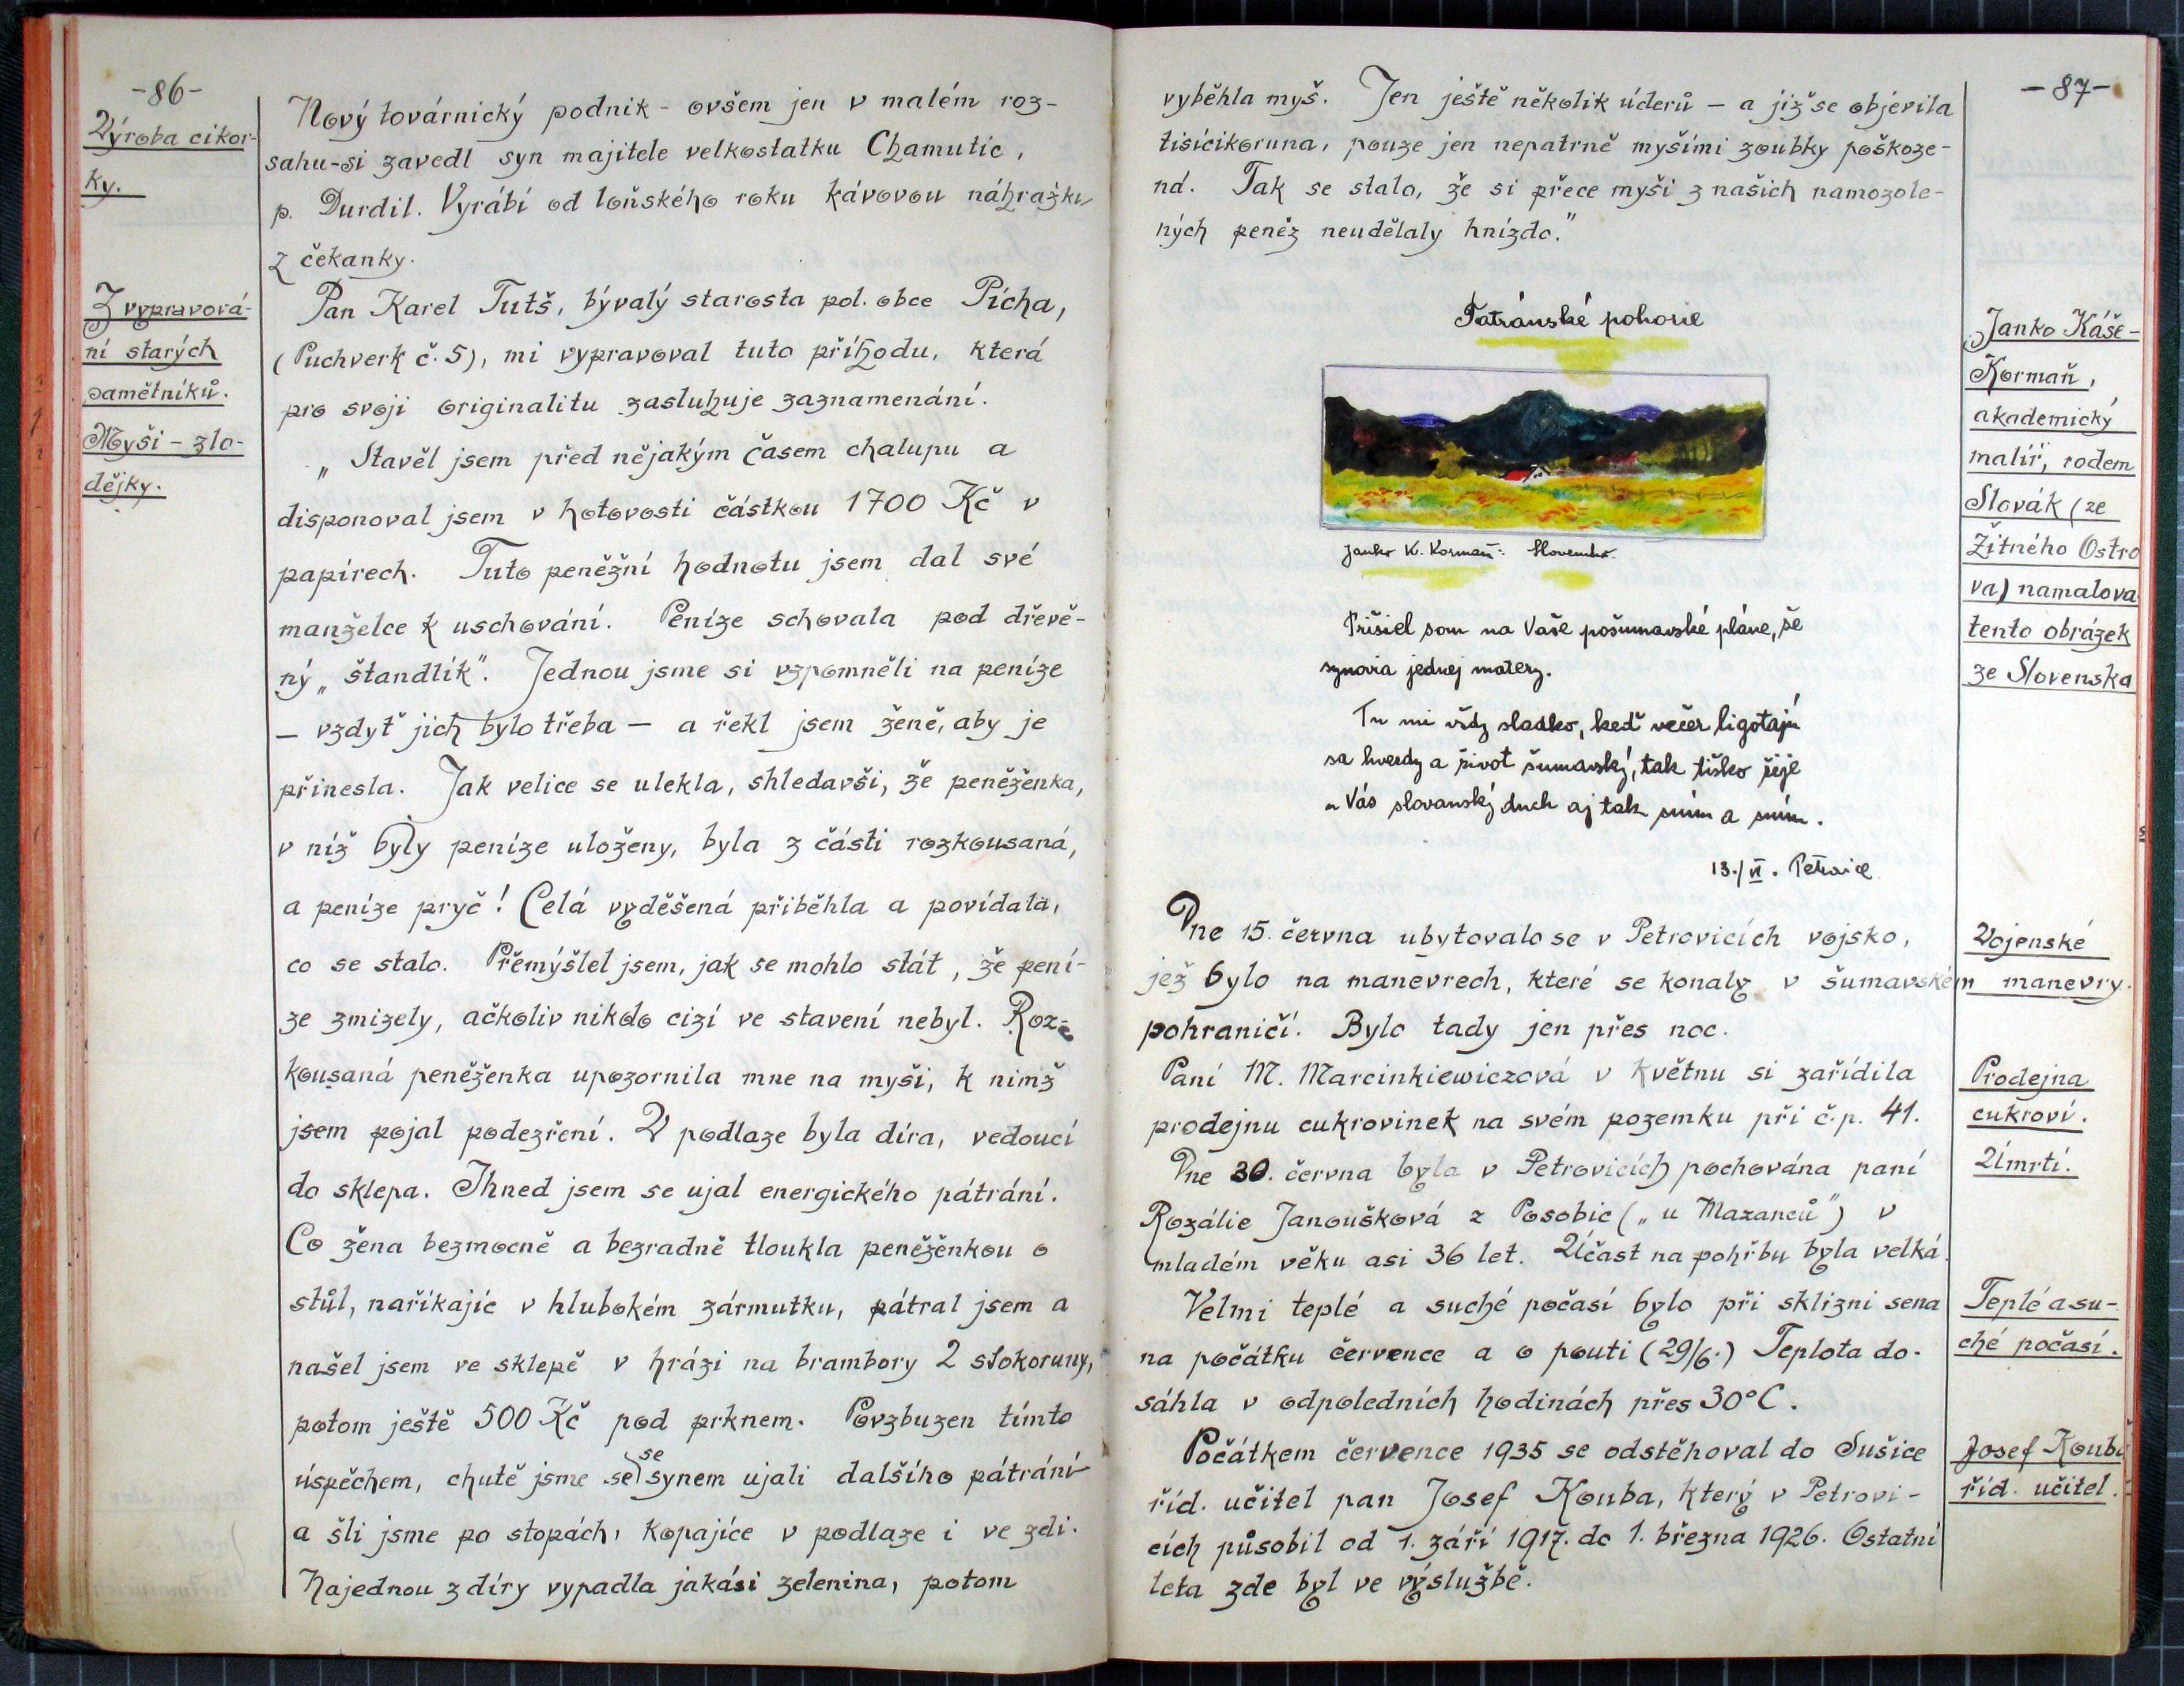 -86-
Výroba cikor-
ky.
Nový továrnický podnik - ovšem jen v malém roz-
sahu-si zavedl syn majitele velkostatku Chamutic,
p. Durdil. Vyrábí od loňského roku kávovou náhražku
z čekanky.
Z vypravová-
ní starých
pamětníků.
Myši - zlo-
dějky.
Pan Karel Tutš, bývalý starosta pol. obce Pícha,
(Puchverk č. 5), mi vypravoval tuto příhodu, která
pro svoji originalitu zasluhuje zaznamenání.
„Stavěl jsem před nějakým časem chalupu a
disponoval jsem v hotovosti částkou 1700 Kč v
papírech. Tuto peněžní hodnotu jsem dal své
manželce k uschování. Peníze schovala pod dřevě-
ný „štandlík". Jednou jsme si vzpomněli na peníze
- vzdyť jich bylo třeba - a řekl jsem ženě, aby je
přinesla. Jak velice se ulekla, shledavši, že peněženka,
v níž byly peníze uloženy, byla z části rozkousaná,
a peníze pryč! Celá vyděšená přiběhla a povídala,
co se stalo. Přemýšlel jsem, jak se mohlo stát, že pení-
ze zmizely, ačkoliv nikdo cizí ve stavení nebyl. Roz-
kousaná peněženka upozornila mne na myši, k nimž
jsem pojal podezření. V podlaze byla díra, vedoucí
do sklepa. Ihned jsem se ujal energického pátrání.
Co žena bezmocně a bezradně tloukla peněženkou o
stůl, naříkajíc v hlubokém zármutku, pátral jsem a
našel jsem ve sklepě v hrázi na brambory 2 stokoruny,
potom ještě 500 Kč pod prknem. Povzbuzen tímto
úspěchem, chutě jsme se se synem ujali dalšího pátrání
a šli jsme po stopách, kopajíce v podlaze i ve zdi.
Najednou z díry vypadla jakási zelenina, potom
-87-
vyběhla myš. Jen ještě několik úderů - a již se objevila
tisícikoruna, pouze jen nepatrně myšími zoubky poškoze-
ná. Tak se stalo, že si přece myši z našich namozole-
ných peněz neudělaly hnízdo."
Tatránské pohorie
Janko K. Kormaň: Slovensko
Prišiel som na Vaše pošumavské pláne, še
synovia jednej matery.
Tu mi vždy sladko, keď večer ligotajú
sa hvezdy a život šumavský, tak tiško žije
u Vás slovanský duch aj tak sním a sním.
13./VI. Petrovice
Janko Káše-
Kormaň,
akademický
malíř, rodem
Slovák (ze
Žitného Ostro
va) namaloval
tento obrázek
ze Slovenska
Dne 15. června ubytovalo se v Petrovicích vojsko,
jež bylo na manevrech, které se konaly v šumavském
pohraničí. Bylo tady jen přes noc.
Vojenské
manevry.
Paní M. Marcinkiewiczová v květnu si zařídila
prodejnu cukrovinek na svém pozemku při č.p. 41.
Prodejna
cukroví.
Dne 30. června byla v Petrovicích pochována paní
Rozálie Janoušková z Posobic („u Mazanců") v
mladém věku asi 36 let. Účast na pohřbu byla velká.
Úmrtí.
Velmi teplé a suché počasí bylo při sklizni sena
na počátku července a o pouti (29/6.) Teplota do-
sáhla v odpoledních hodinách přes 30°C.
Teplé a su-
ché počasí.
Počátkem července 1935 se odstěhoval do Sušice
říd. učitel pan Josef Kouba, který v Petrovi-
cích působil od 1. září 1917. do 1. března 1926. Ostatní
léta zde byl ve výslužbě.
Josef Kouba
říd. učitel.